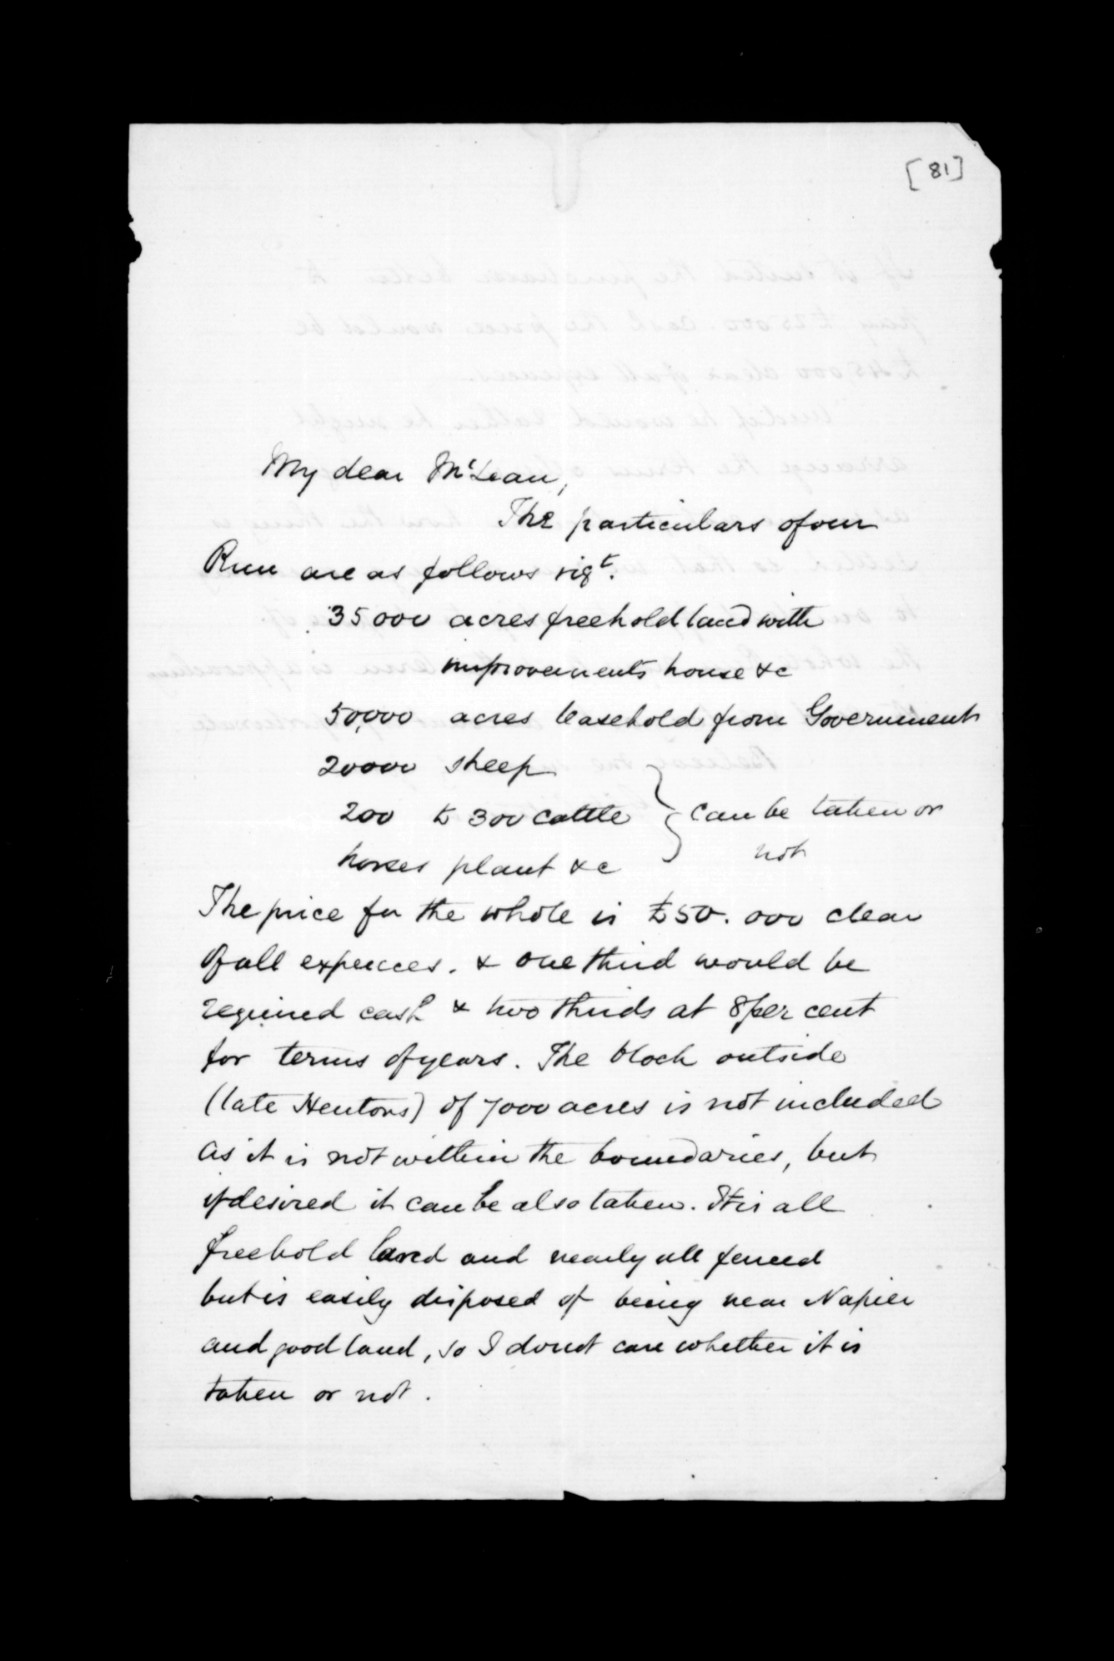 [81]
My dear McLean,
The particulars of our
Run are as follows vigt.
35000 acres freehold land with
improvements house &c
50,000 acres leasehold from Government
20000 sheep
200 to 300 cattle } can be taken or
horses plant &c not
The price for the whole is £50.000 clear
of all expences. & one third would be
required cash & two thirds at 8 per cent
for terms of years. The block outside
(late Hentons) of 7000 acres is not included
as it is not within the boundaries, but
if desired it can be also taken. It is all
freehold land and nearly all fenced
but is easily disposed of being near Napier
and good land, so I donot care whether it is
taken or not.